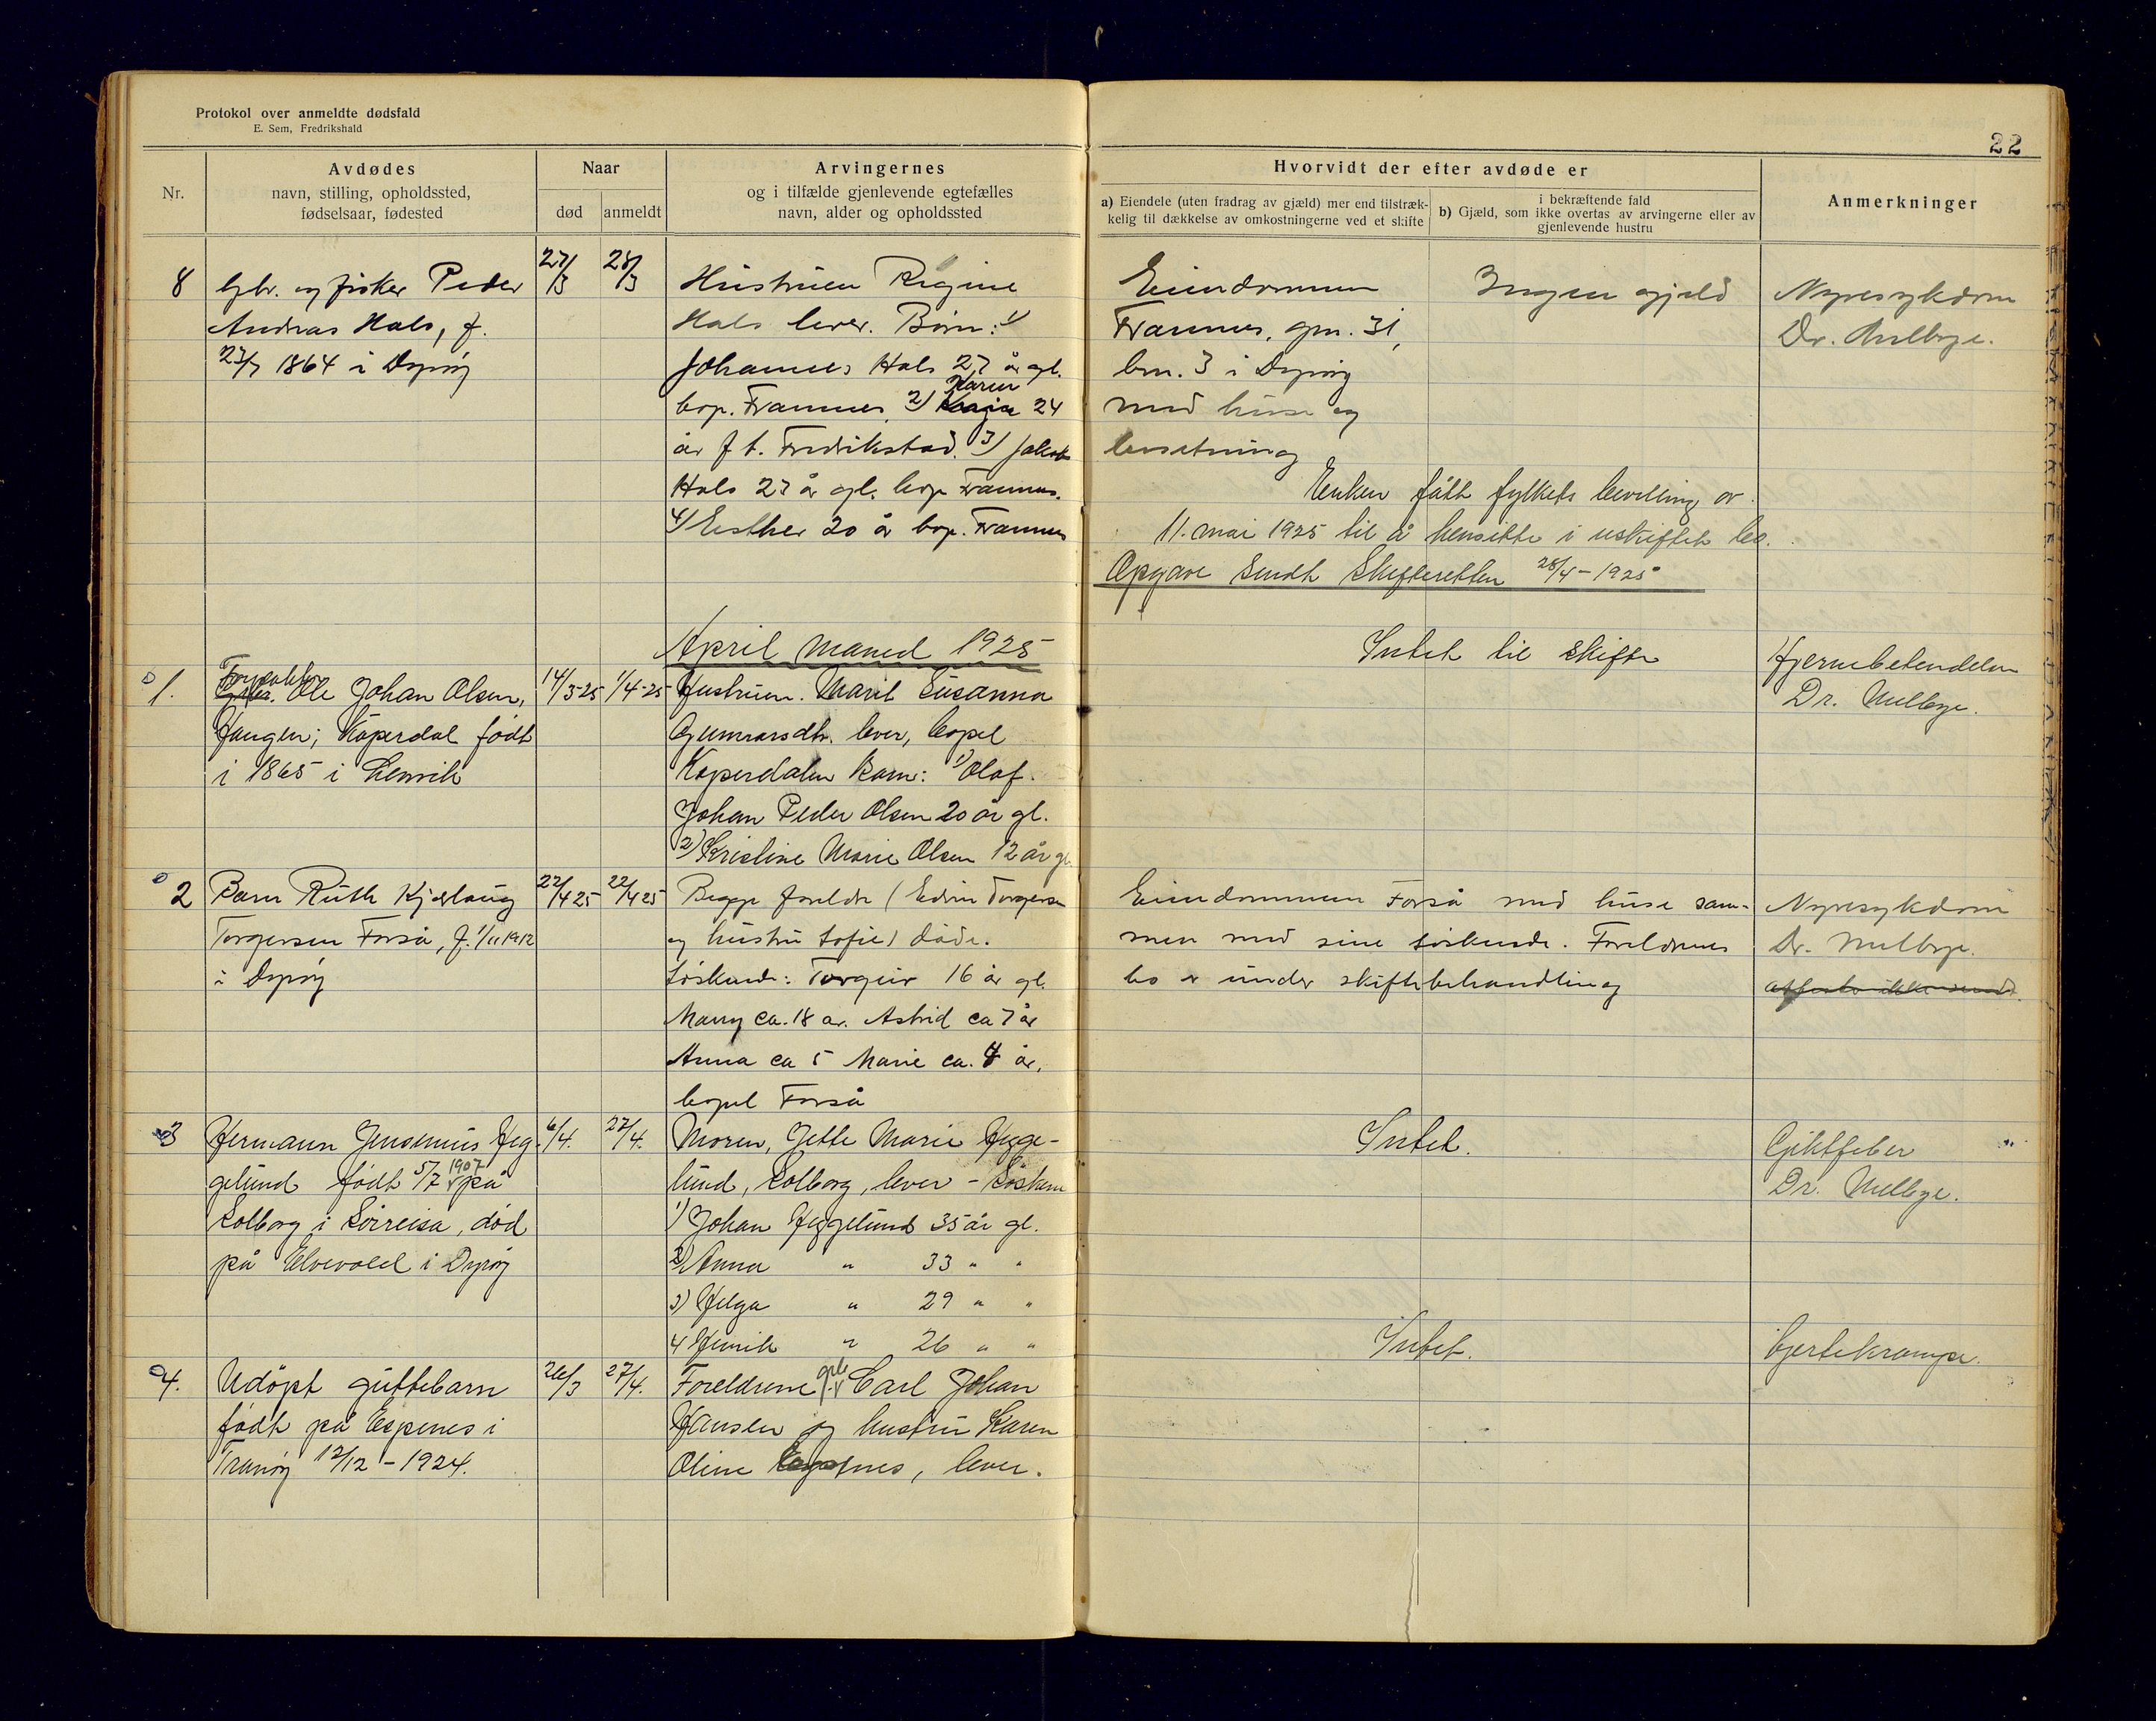 Protokol over anmeldte dødsfald
E. Sem, Fredrikshald
22
Nr.
Avdødes
navn, stilling, opholdssted,
fødselsaar, fødested
Naar
død
anmeldt
Arvingernes
og i tilfælde gjenlevende egtefælles
navn, alder og opholdssted
Hvorvidt der efter avdøde er
a) Eiendele (uten fradrag av gjæld) mer end tilstræk-
kelig til dækkelse av omkostningerne ved et skifte
i bekræftende fald
b) Gjæld, som ikke overtas av arvingerne eller av
gjenlevende hustru
Anmerkninger
8
Gbr. og fisker Peder
Andreas Hals, f.
23/7 1864 i Dyrøy
27/3
28/3
Hustruen Regine
Hals lever. Børn: 1)
Johannes Hals 27 år gl.
bop. Frannes. 2) Karen 24
år f t. Fredrikstad. 3) Jakob
Hals 23 år gl. bop Frannes.
4) Esther 20 år bop. Frannes
Eiendommen
Frannes, gnr. 31,
bnr. 3 i Dyrøy
med huse og
besetning
Ingen gjeld
Nyresykdom
Dr. Melbye.
Enken fått fylkets bevilling av
11. mai 1925 til å hensitte i uskiftet bo.
Opgave sendt Skifteretten 28/4-1925
April Maned 1925
1.
Ole Johan Olsen,
Haugen; Kåperdal født
i 1865 i Lenvik
14/3-25
1/4-25
Hustruen. Marit Susanna
Gunnarsdtr. lever, bopel
Kåperdalen Barn: 1) Olaf.
Johan Peder Olsen 20 år gl.
2) Kristine Marie Olsen 12 år gl.
Intet til skifte
Hjernebetendelse
Dr. Melbye.
2
Barn Ruth Kjellaug
Torgersen Forså, f. 1/11 1912
i Dyrøy
22/4 25
22/4 25
Begge foreldre (Edvin Torgersen
og hustru Sofie) døde.
Søskende: Torgeir 16 år gl.
Marry ca. 18 ar. Astrid ca 7 år
Anna ca 5 Marie ca. 4 år,
bopel Forså
Eiendommen Forså med huse sam-
men med sine søskende. Foreldrenes
bo er under skiftebehandling
Nyresykdom
Dr. Melbye.
attester ikke sendt.
3
Hermann Jensenius Heg-
gelund født 5/7 1907 på
Solborg i Sørreisa, død
på Elvevold i Dyrøy
6/4.
27/4.
Moren, Jette Marie Hegge-
lund, Solborg, lever - Søsken
1) Johan Heggelund 35 år gl.
2) Anna " 33 " "
3) Helga " 29 " "
4 Henrik " 26 " "
Intet.
Giktfeber
Dr. Melbye.
4.
Udøpt guttebarn
født på Espenes i
Tranøy 12/12-1924.
26/3
27/4.
Foreldrene Carl Johan
Hansen og hustru Karen
Oline Espenes, lever.
Intet.
Hjertekrampe.